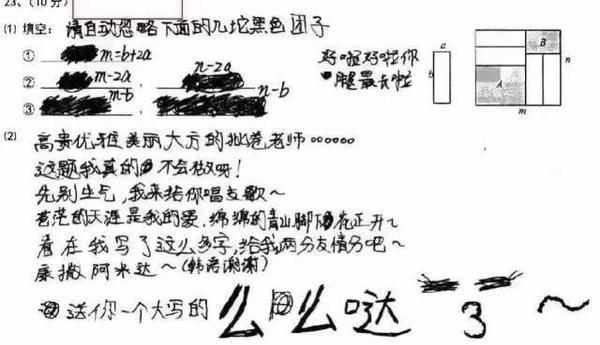 23、(10分)
(1) 填空: 请自动忽略下面的几坨黑色团子
① m=b+2a
② m-2a, n-2a
③ m-b, n-b
好啦好啦你
腿最长啦
a
b
A
B
n
m
(2) 高贵优雅美丽大方的批卷老师……
这题我真的不会做呀!
先别生气,我来给你唱支歌~
苍茫的天涯是我的爱,绵绵的青山脚下花正开~
看在我写了这么多字,给我两分友情分吧~
康撒阿米达~(韩语谢谢)
送你一个大写的 么么哒 3 ~